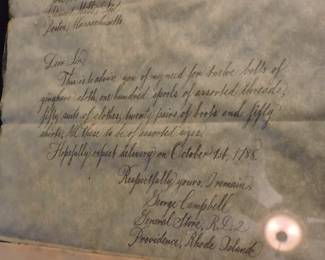 Boston, Massachusetts
Dear Sir:
This is to advise you of my need for twelve bolts of
gingham cloth, one hundred spools of assorted threads,
fifty suits of clothes, twenty pairs of boots and fifty
shirts. All these to be of assorted sizes.
Hopefully expect delivery on October 1st, 1788.
Respectfully yours, I remain,
George Campbell
General Store, R.D. 2
Providence, Rhode Island